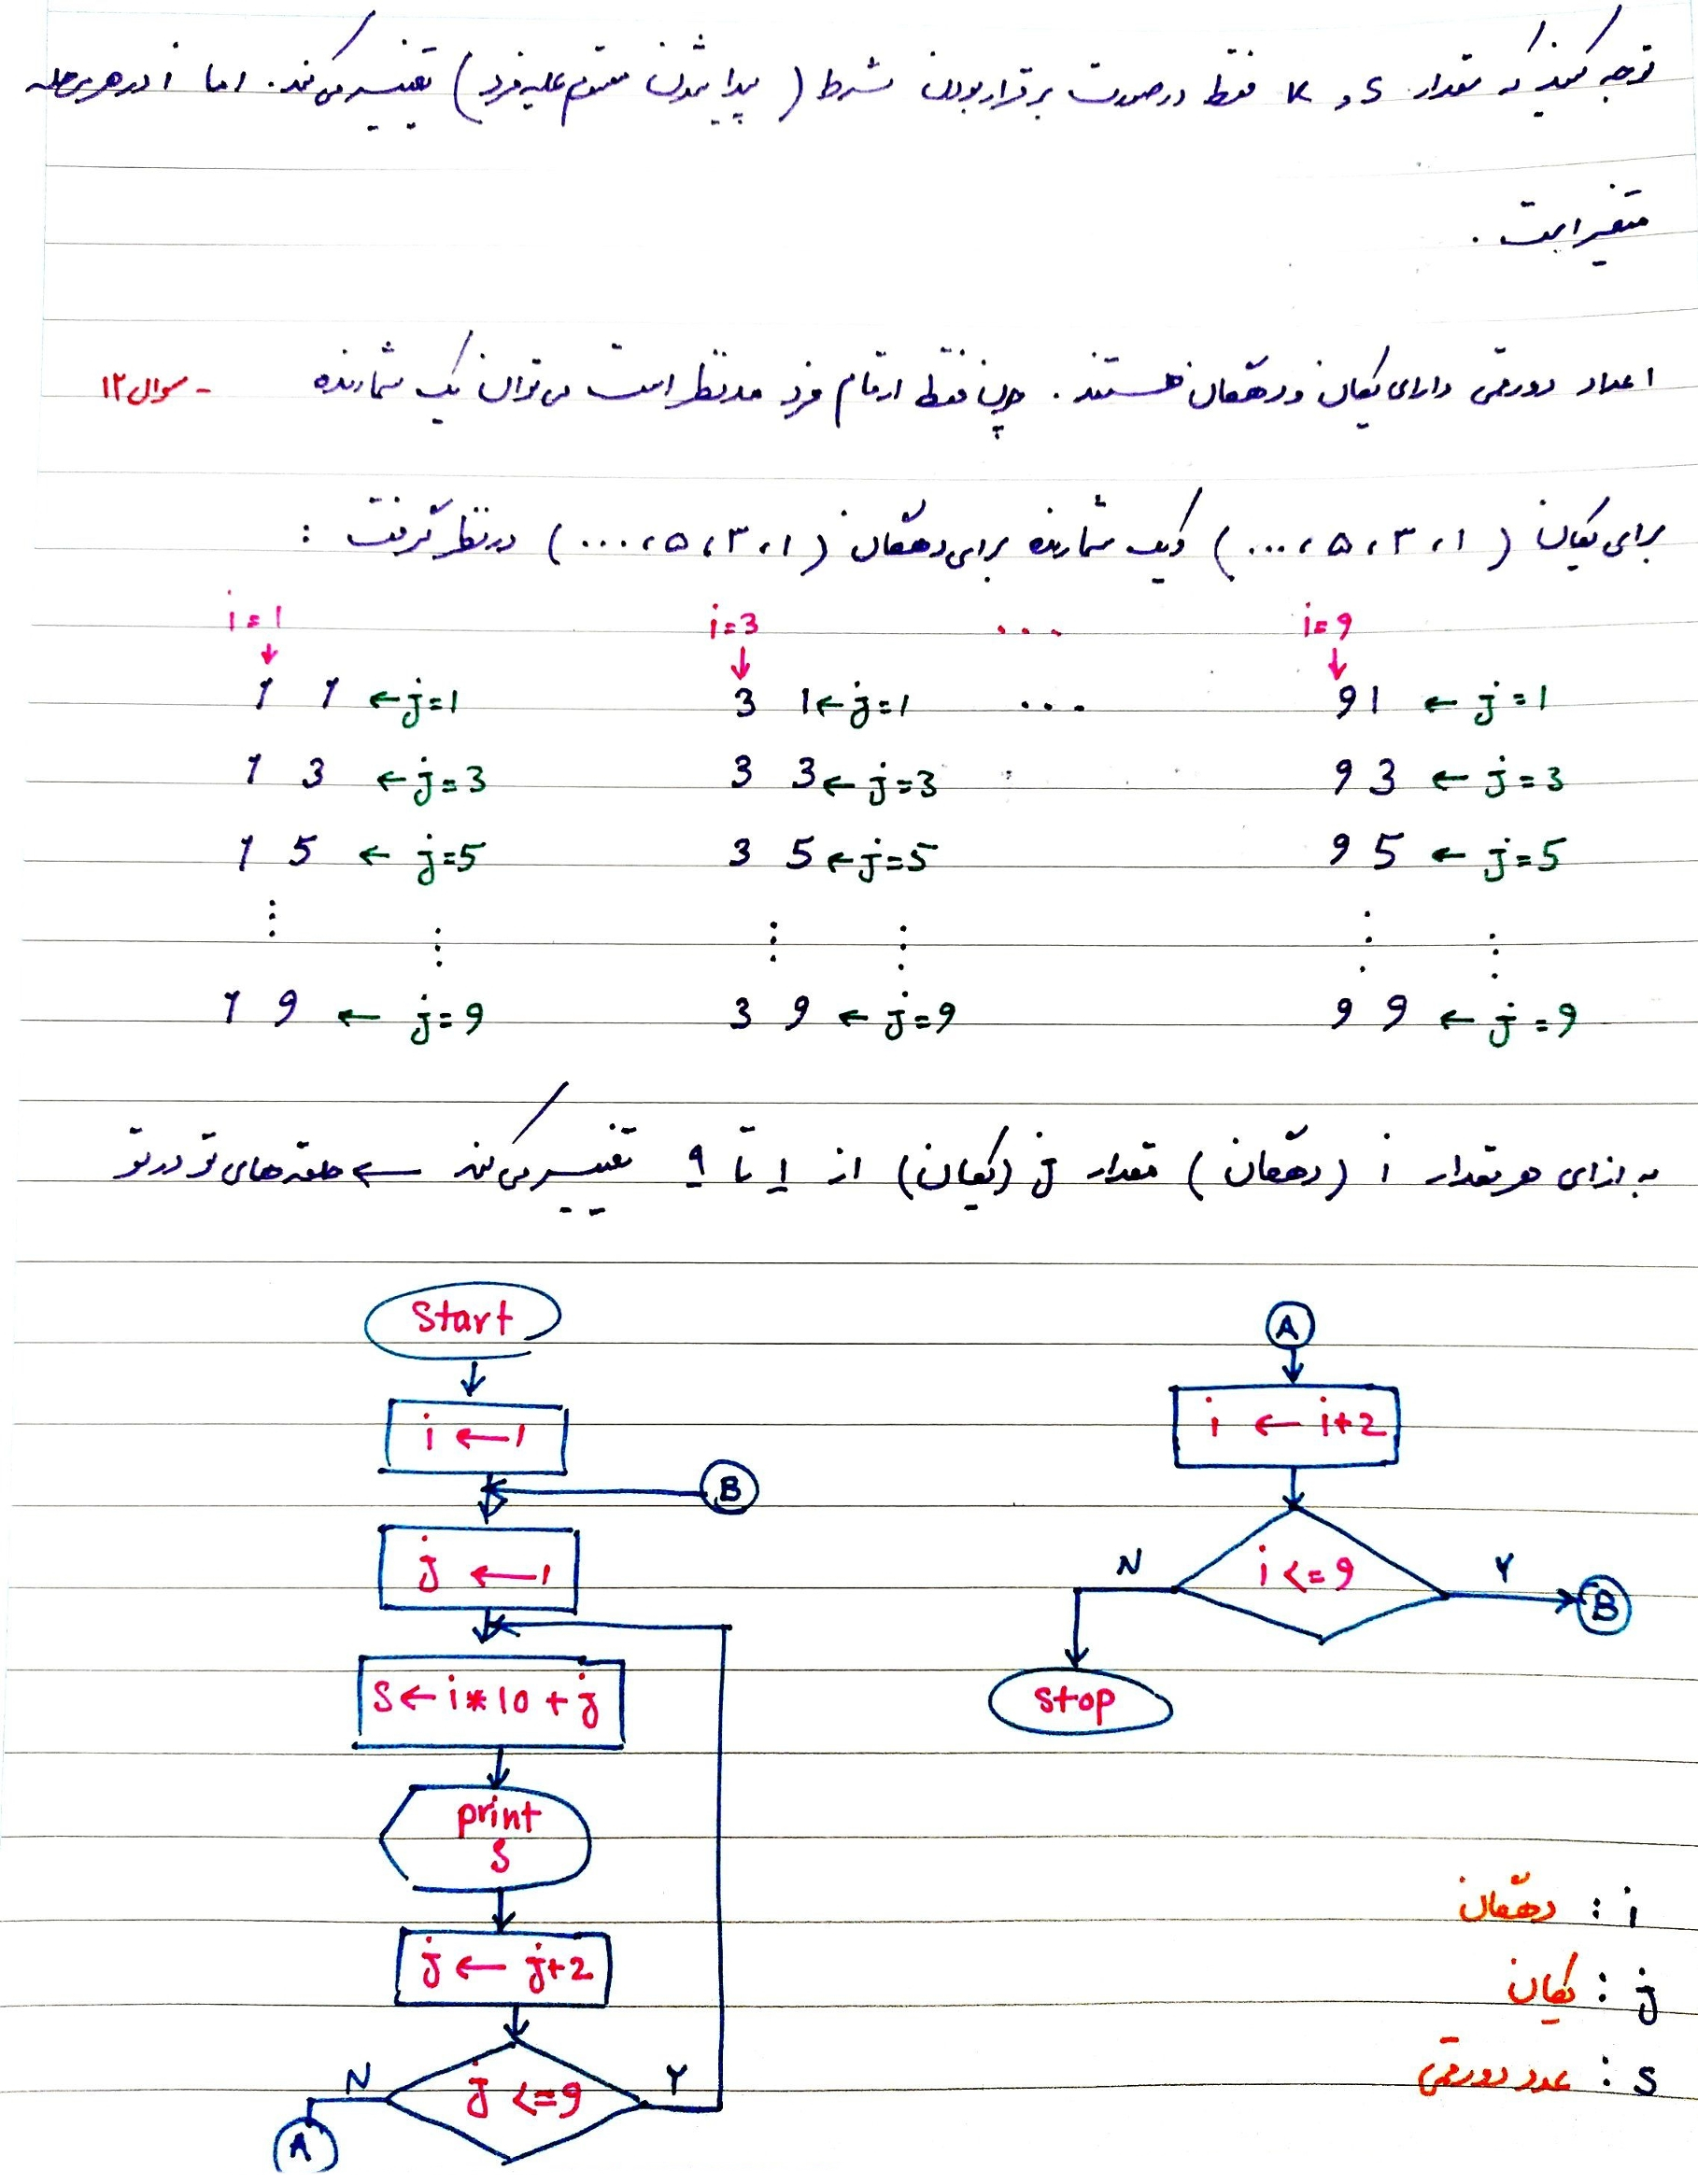 توجه کنید که مقدار S و K فقط در صورت برقرار بودن شرط (پیدا شدن مقسوم علیه فرد) تغییر می‌کند. اما i در هر مرحله
متغیر است.
اعداد دو رقمی دارای یکان و دهگان هستند. چون فقط ارقام فرد مدنظر است می‌توان یک شمارنده
- سوال ۱۲
برای یکان (۱، ۳، ۵، ...) و یک شمارنده برای دهگان (۱، ۳، ۵، ...) در نظر گرفت :
i=1 i=3 ... i=9
↓ ↓ ↓
1 1 ←j=1 3 1←j=1 ... 9 1 ← j=1
1 3 ←j=3 3 3←j=3 9 3 ← j=3
1 5 ← j=5 3 5←j=5 9 5 ← j=5
⋮ ⋮ ⋮ ⋮ ⋮ ⋮
1 9 ← j=9 3 9 ← j=9 9 9 ← j=9
به ازای هر مقدار i (دهگان) مقدار j (یکان) از ۱ تا ۹ تغییر می‌کند ← حلقه‌های تو در تو
Start
i ←1
B
j ←1
S← i*10 + j
print
S
j ← j+2
j <=9
N
Y
A
A
i ← i+2
i <=9
N
Y
B
stop
i : دهگان
j : یکان
S : عدد دو رقمی